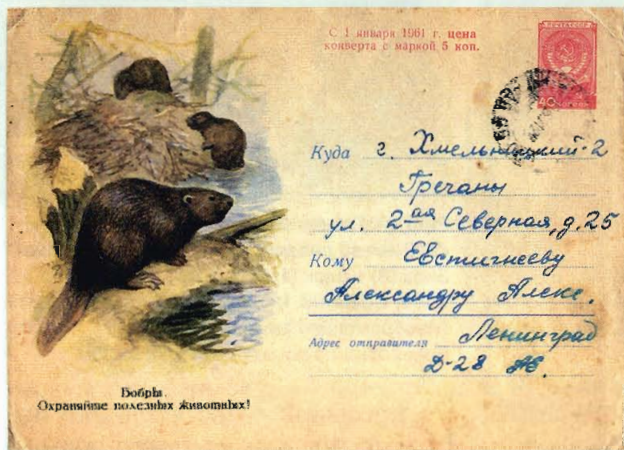 С 1 января 1961 г. цена
конверта с маркой 5 коп.
ПОЧТА СССР
40 КОПЕЕК
Куда г. Хмельницкий-2
Гречаны
ул. 2ая Северная, д. 25
Кому Евстигнееву
Александру Алекс.
Адрес отправителя Ленинград
Д-28
Бобры.
Охраняйте полезных животных!